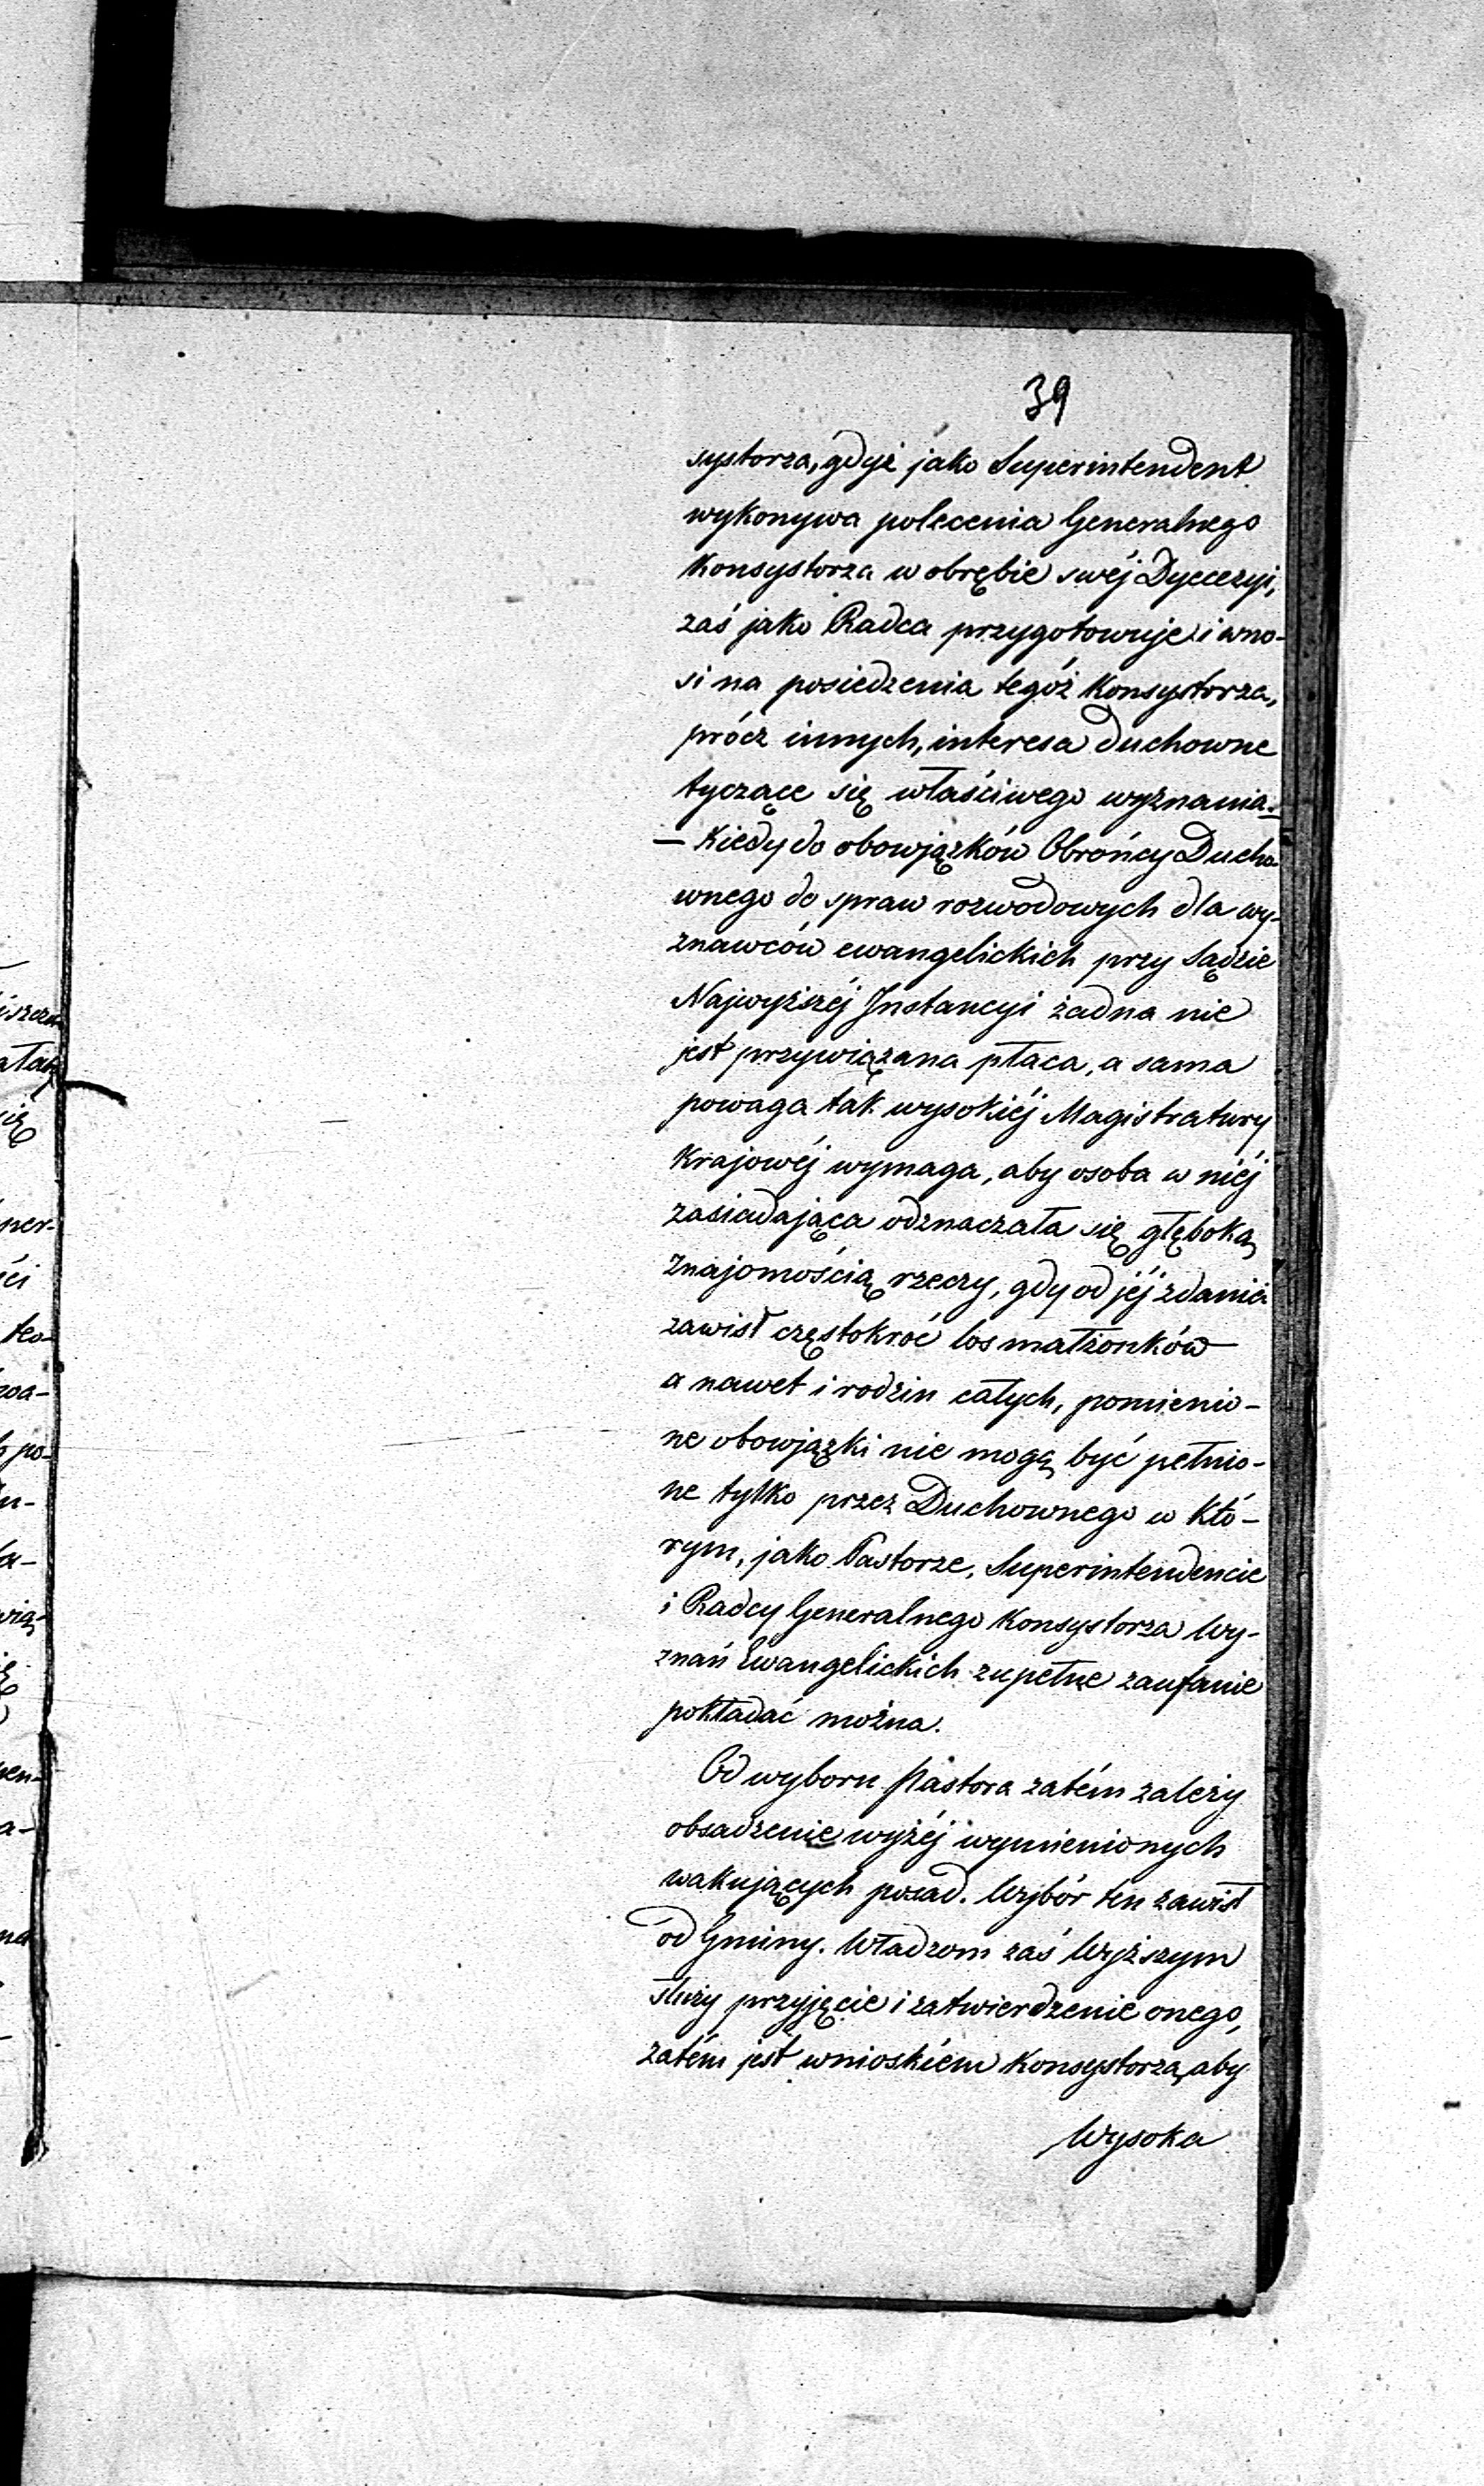 39
systorza, gdyż jako Superintendent
wykonywa polecenia Generalnego
Konsystorza w obrębie swéj Dyecezyi,
zaś jako Radca przygotowuje i wno-
si na posiedzenia tegóż Konsystorza,
prócz innych, interesa duchowne
tyczące się właściwego wyznania.
— Kiedy do obowjązków Obrońcy Ducho
wnego do spraw rozwodowych dla wy-
znawców ewangelickich przy Sądzie
Najwyższéj Instancyi żadna nie
jest przywiązana płaca, a sama
powaga tak wysokiéj Magistratury
Krajowéj wymaga, aby osoba w niéj
zasiadająca odznaczała się głęboką
znajomością rzeczy, gdy od jéj zdania
zawisł częstokroć los małżonków
a nawet i rodzin całych, pomienio-
ne obowjązki nie mogą być pełnio-
ne tylko przez Duchownego w któ-
rym, jako Pastorze, Superintendencie
i Radcy Generalnego Konsystorza Wy-
znań Ewangelickich zupełne zaufanie
pokładać można.
Od wyboru Pastora zatém zależy
obsadzenie wyżéj wymienionych
wakujących posad. Wybór ten zawisł
od Gminy. Władzom zaś Wyższym
służy przyjęcie i zatwierdzenie onego,
zatém jest wnioskiem Konsystorza, aby
Wysoka